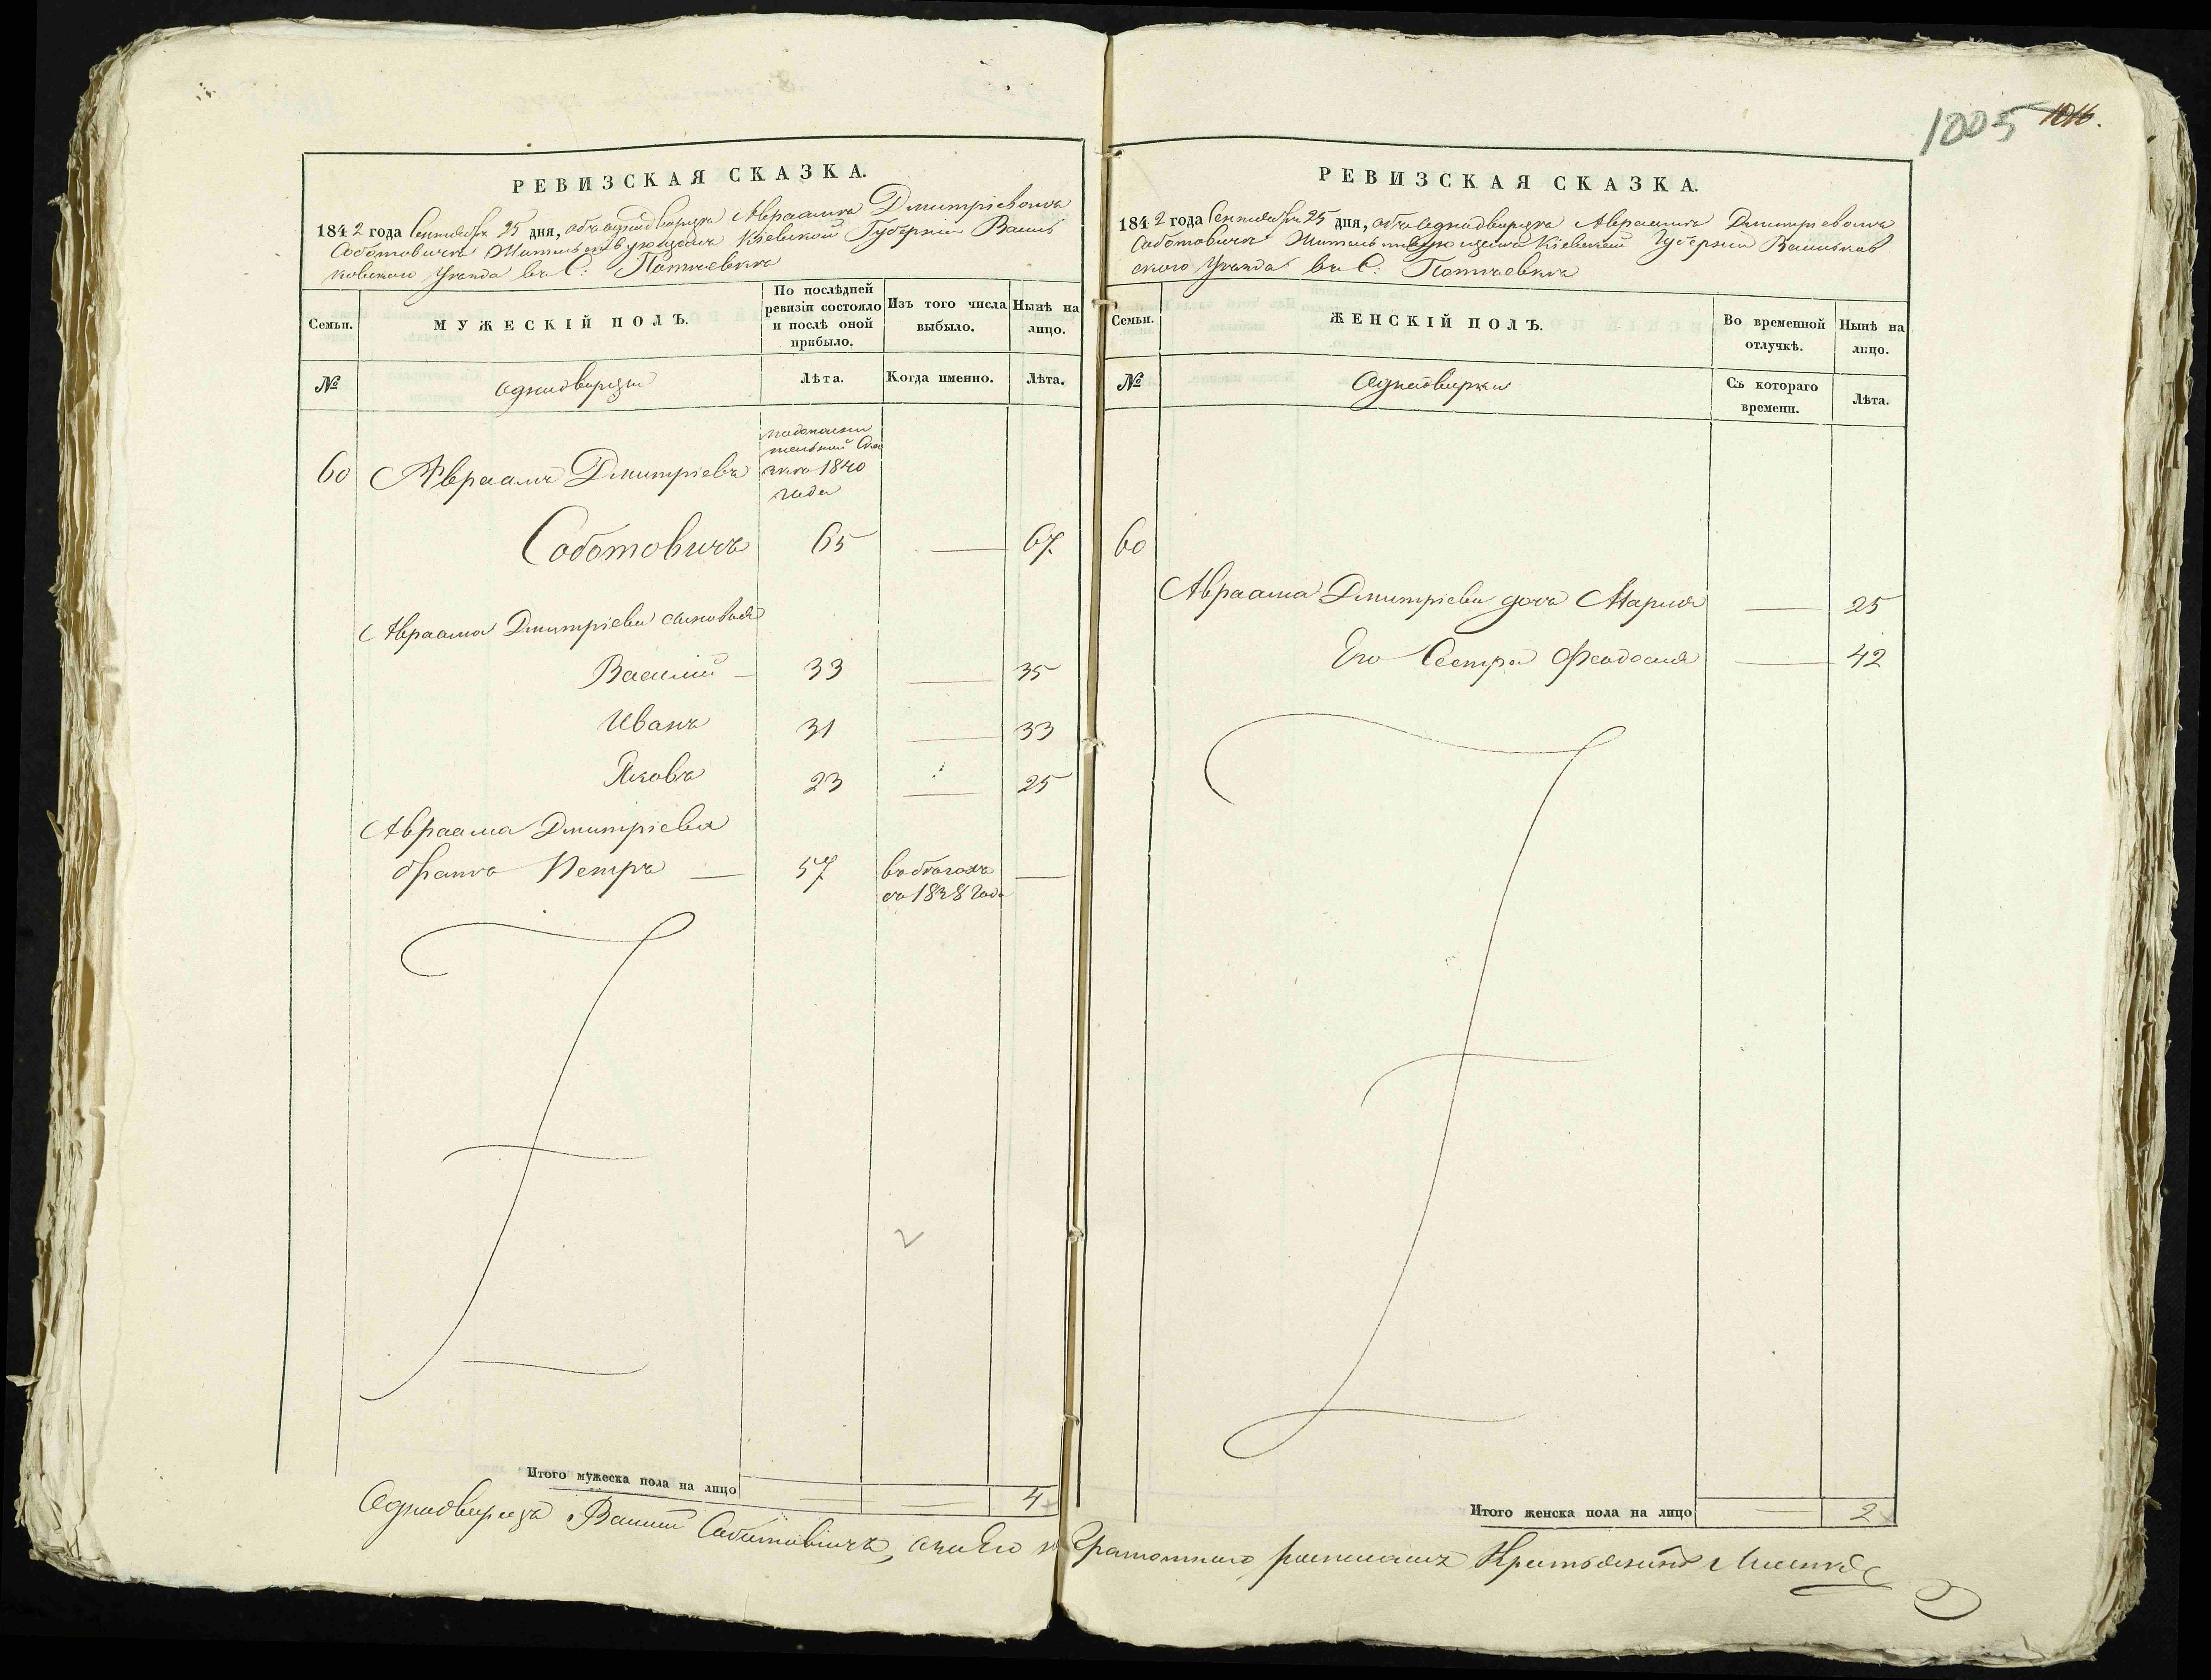 1005 1016.
РЕВИЗСКАЯ СКАЗКА.
1842 года Сентября 25 дня, объ однодворцѣ Авраамѣ Дмитріевомъ
Соботовичѣ Жительствующемъ Кіевской Губерніи Василь
ковского Уѣзда въ С:
Семьи.
МУЖЕСКІЙ ПОЛЪ.
По послѣдней
ревизіи состояло
и послѣ оной
прибыло.
Изъ того числа
выбыло.
Нынѣ на
лицо.
№
однодворцы
Лѣта.
Когда именно.
Лѣта.
60 Авраамъ Дмитріевъ
подополни
тельной Ска
зкѣ 1840
года
Соботовичъ 65 — 67
Авраама Дмитріева сыновья
Василий — 33 — 35
Иванъ 31 — 33
Яковъ 23 — 25
Авраама Дмитріева
братъ Петръ — 57 въ бѣгахъ —
съ 1838 года
2
Итого мужеска пола на лицо — — 4
РЕВИЗСКАЯ СКАЗКА.
1842 года Сентября 25 дня, объ однодворцѣ Авраамѣ Дмитріевомъ
Соботовичѣ Жительствующемъ Кіевской Губерніи Васильков
ского Уѣзда въ С:
Семьи.
ЖЕНСКІЙ ПОЛЪ.
Во временной
отлучкѣ.
Нынѣ на
лицо.
№
Однодворки
Съ котораго
времени.
Лѣта.
60
Авраама Дмитріева дочь Мария — 25
Его Сестра Феодосия — 42
Итого женска пола на лицо — 2
Однодворецъ Василий Соботовичъ, а за Его не Грамотного росписался Крестьянинъ